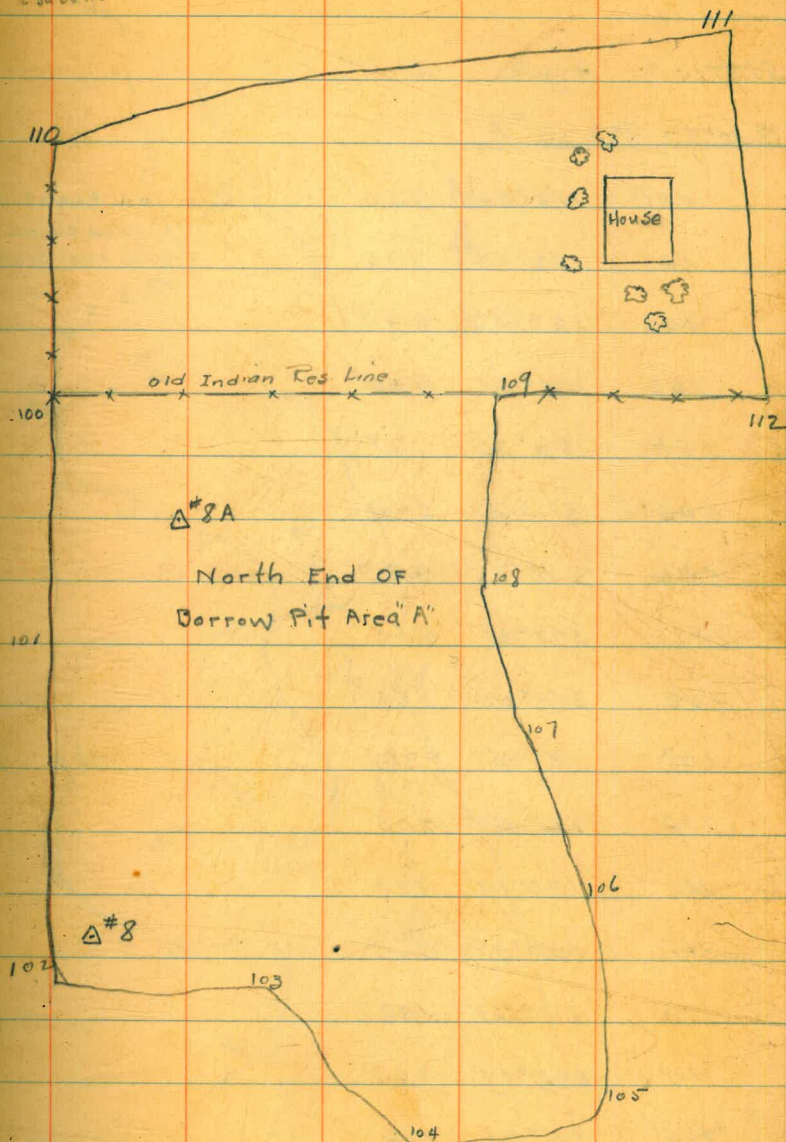 111
110
House
old Indian Res Line
109
100
112
#8A
North End OF
Borrow Pit Area "A"
108
101
107
106
#8
102
103
105
104